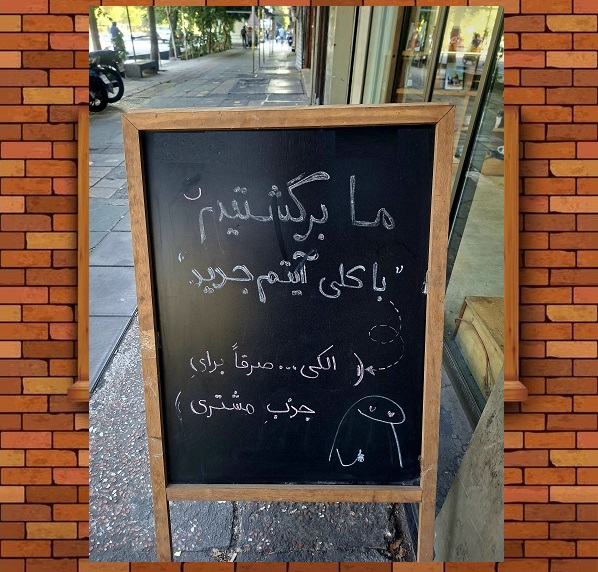 ما برگشتیم
"با کلی آیتم جدید"
(الکی... صرفاً برایِ
جذبِ مشتری)